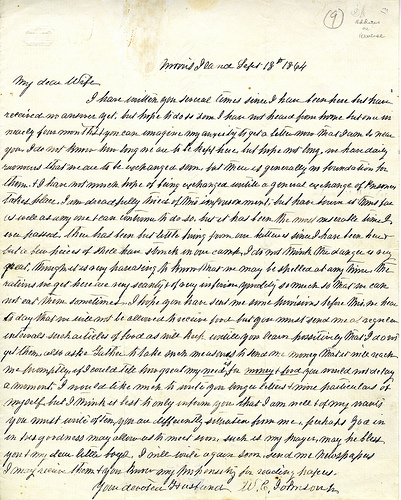 (9)
Address
on
Reverse
Morris Island Sept 13th 1864
My dear Wife
I have written you several times since I have been here but have
received no answer yet. but hope to do so soon I have not heard from home but once in
nearly four months you can imagine my anxiety to get a letter now that I am so near
you. I do not know how long we are to be kept here but hope not long, we have daily
rumours that we are to be exchanged soon. but there is generally no foundation for
them & I have not much hope of being exchanged until a general exchange of Prisoners
takes place. I am dreadfully tired of this imprisonment, but have borne it thus far
as well as any one can continue to do so, but it has been the most miserable time I
ever passed. there has been but little firing from our batteries since I have been here
but a few pieces of shell have struck in our camp, I do not think the danger is very
great, though it is very harassing to know that we may be shelled at any time. the
rations we get here are very scanty & of very inferior quality so much so that we can
not eat them sometimes. I hope you have sent me some provisions before this, we hear
to day that we will not be allowed to receive food but you must send me at regular
intervals such articles of food as will keep until you learn positively that I do not
get them. also ask Father to take such measures to send me money that it will reach
me promptly if I could tell how great my need for money & food you would not delay
a moment. I would like much to write you longer letters & more particulars of
myself but I think it best to only inform you that I am well & of my wants
you must write often, you are differently situated from me, perhaps God in
in his goodness may allow us to meet soon, such is my prayer, may he bless
you & my dear little boys. I will write again soon send me Newspapers
I may receive them & you know my propensity for reading papers.
Your devoted Husband W. E. Johnson Jr